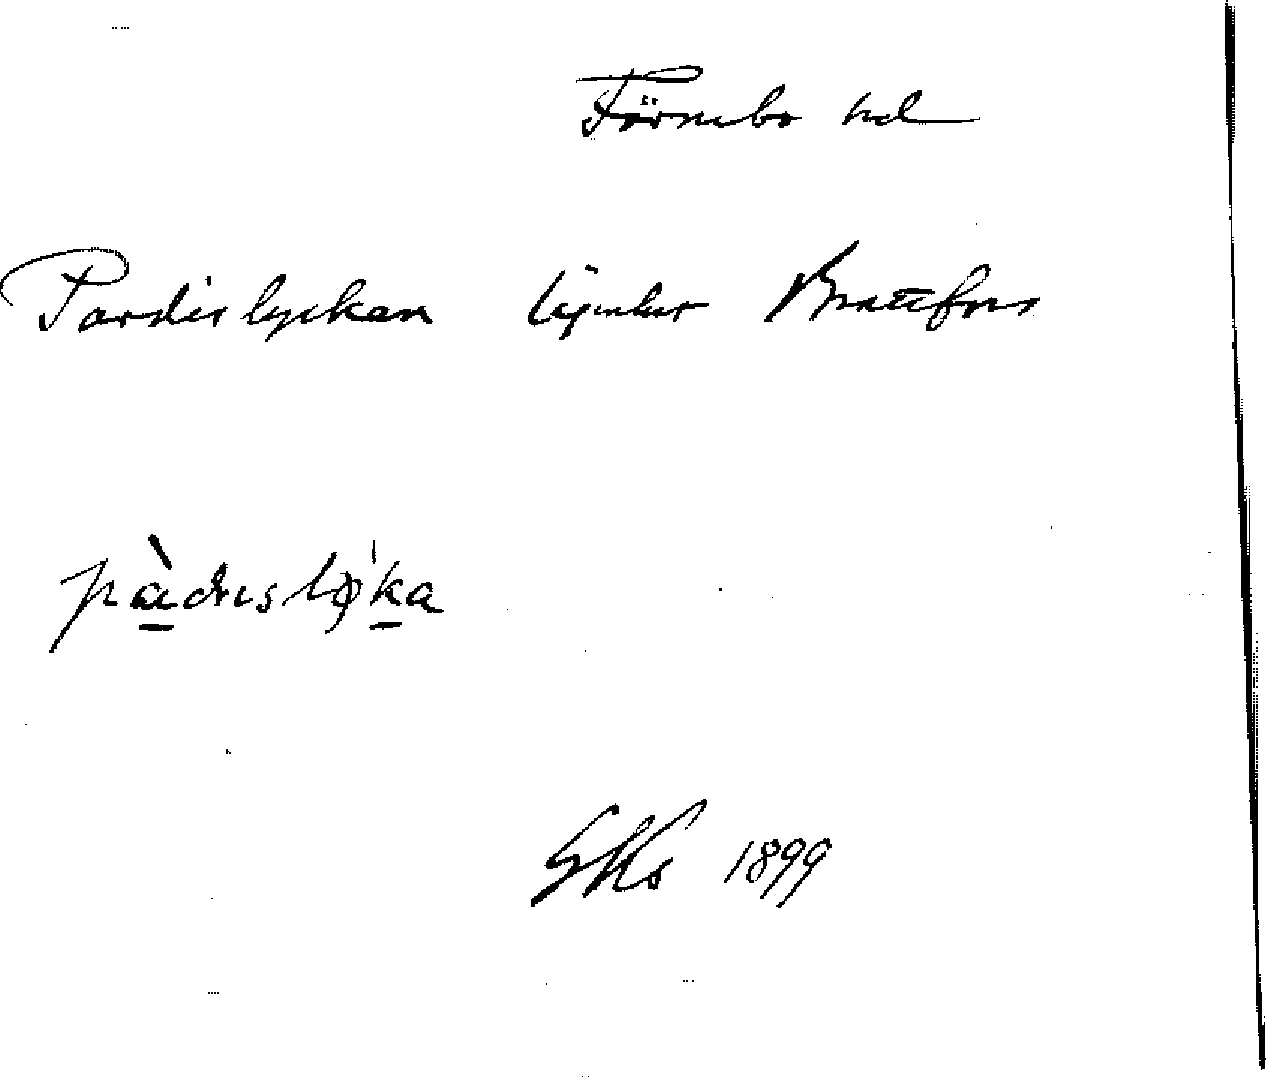 Färnebo hd
Pardislyckan lägenhet Brattfors
pàdɩslø̀ka
1899